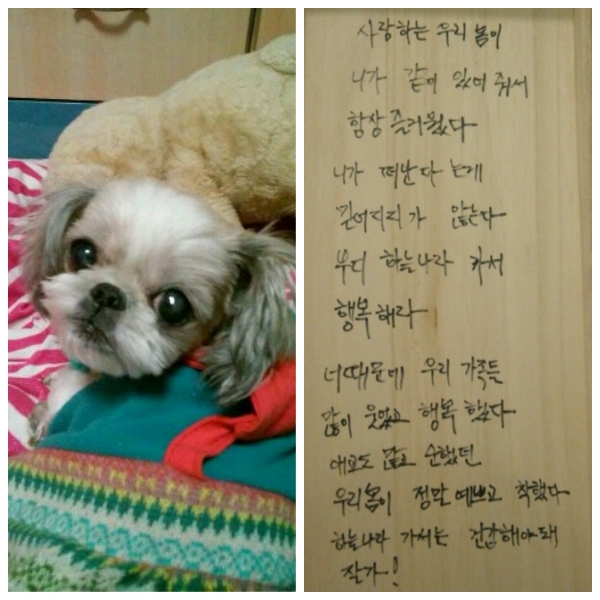 사랑하는 우리 봄이
니가 같이 있어 줘서
항상 즐거웠다
니가 떠난다 는게
믿어지지가 않는다
부디 하늘나라 가서
행복해라
너때문에 우리 가족들
많이 웃었고 행복 했다
애교도 많고 순했던
우리봄이 정말 예쁘고 착했다
하늘나라 가서는 건강해야돼
잘가!